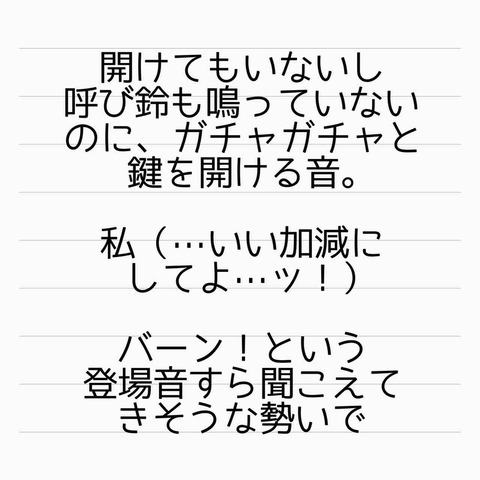 開けてもいないし
呼び鈴も鳴っていない
のに、ガチャガチャと
鍵を開ける音。
私（…いい加減に
してよ…ッ！）
バーン！という
登場音すら聞こえて
きそうな勢いで